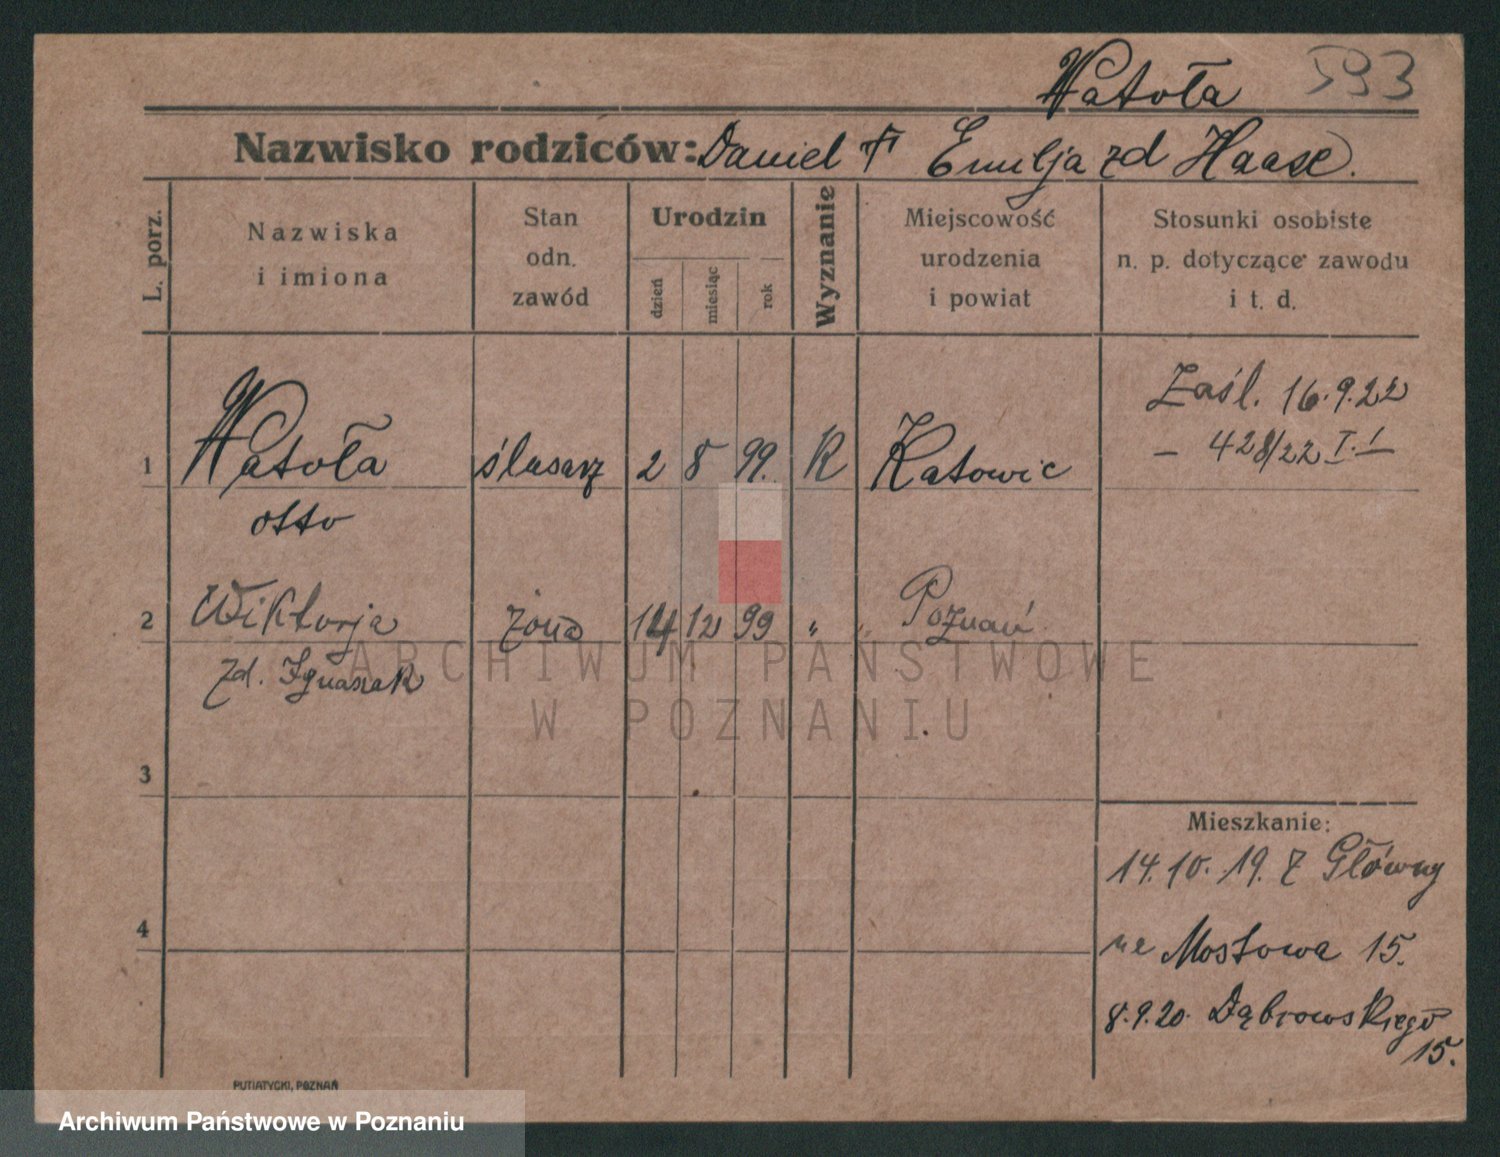 Watoła 593
Nazwisko rodziców: Daniel Emilja zd Haase.
L. porz.
Nazwiska
i imiona
Stan
odn.
zawód
Urodzin
dzień
miesiąc
rok
Wyznanie
Miejscowość
urodzenia
i powiat
Stosunki osobiste
n. p. dotyczące zawodu
i t. d.
Zaśl. 16.9.22
– 428/22 I. –
1 Watoła ślusarz 2 8 99. R Katowic
Otto
2 Wiktorja żona 14 12 99 " Poznań
zd. Ignasiak
ARCHIWUM PAŃSTWOWE
W POZNANIU
3
Mieszkanie:
14.10.19. z Główny
4
na Mostowa 15.
8.9.20. Dąbrowskiego
15.
PUTIATYCKI, POZNAŃ
Archiwum Państwowe w Poznaniu